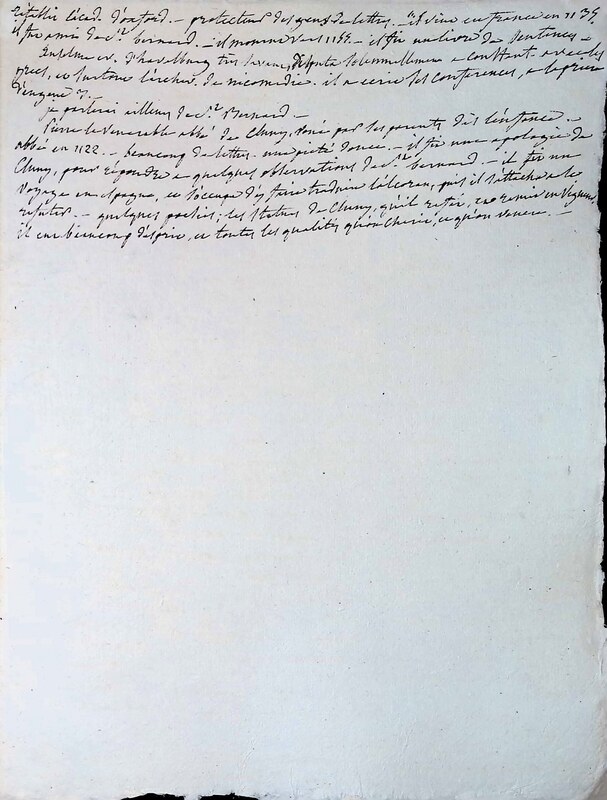 rétablir l'écad. d'oxford. — protecteur des gens de lettres. — il vint en france en 1135.
il fut ami de St. bernard. — il mourut vers 1154. — il fit un livre de sentences. —
Anselme ev. d'havelburg très savant, disputa solemnellement a constant. avec les
grecs, et surtout l'archev. de nicomedie. il a ecrit ses conferences, a la priere
d'eugene 3. —
je parlerai ailleurs de St. Bernard —
Pierre le venerable abbé de Cluny, voué par ses parents dès l'enfance. —
abbé en 1122. — beaucoup de lettres. une pieté douce. — il fit une apologie de
Cluny, pour répondre a quelques observations de St. bernard. — il fit un
voyage en espagne, et s'occupa d'y faire traduire l'alcoran, puis il s'attacha a le
refuter. — quelques poesies; les statuts de Cluny, qu'il refit, et remit en vigueur
il eut beaucoup d'esprit, et toutes les qualités qu'on cherit, et qu'on venere. —